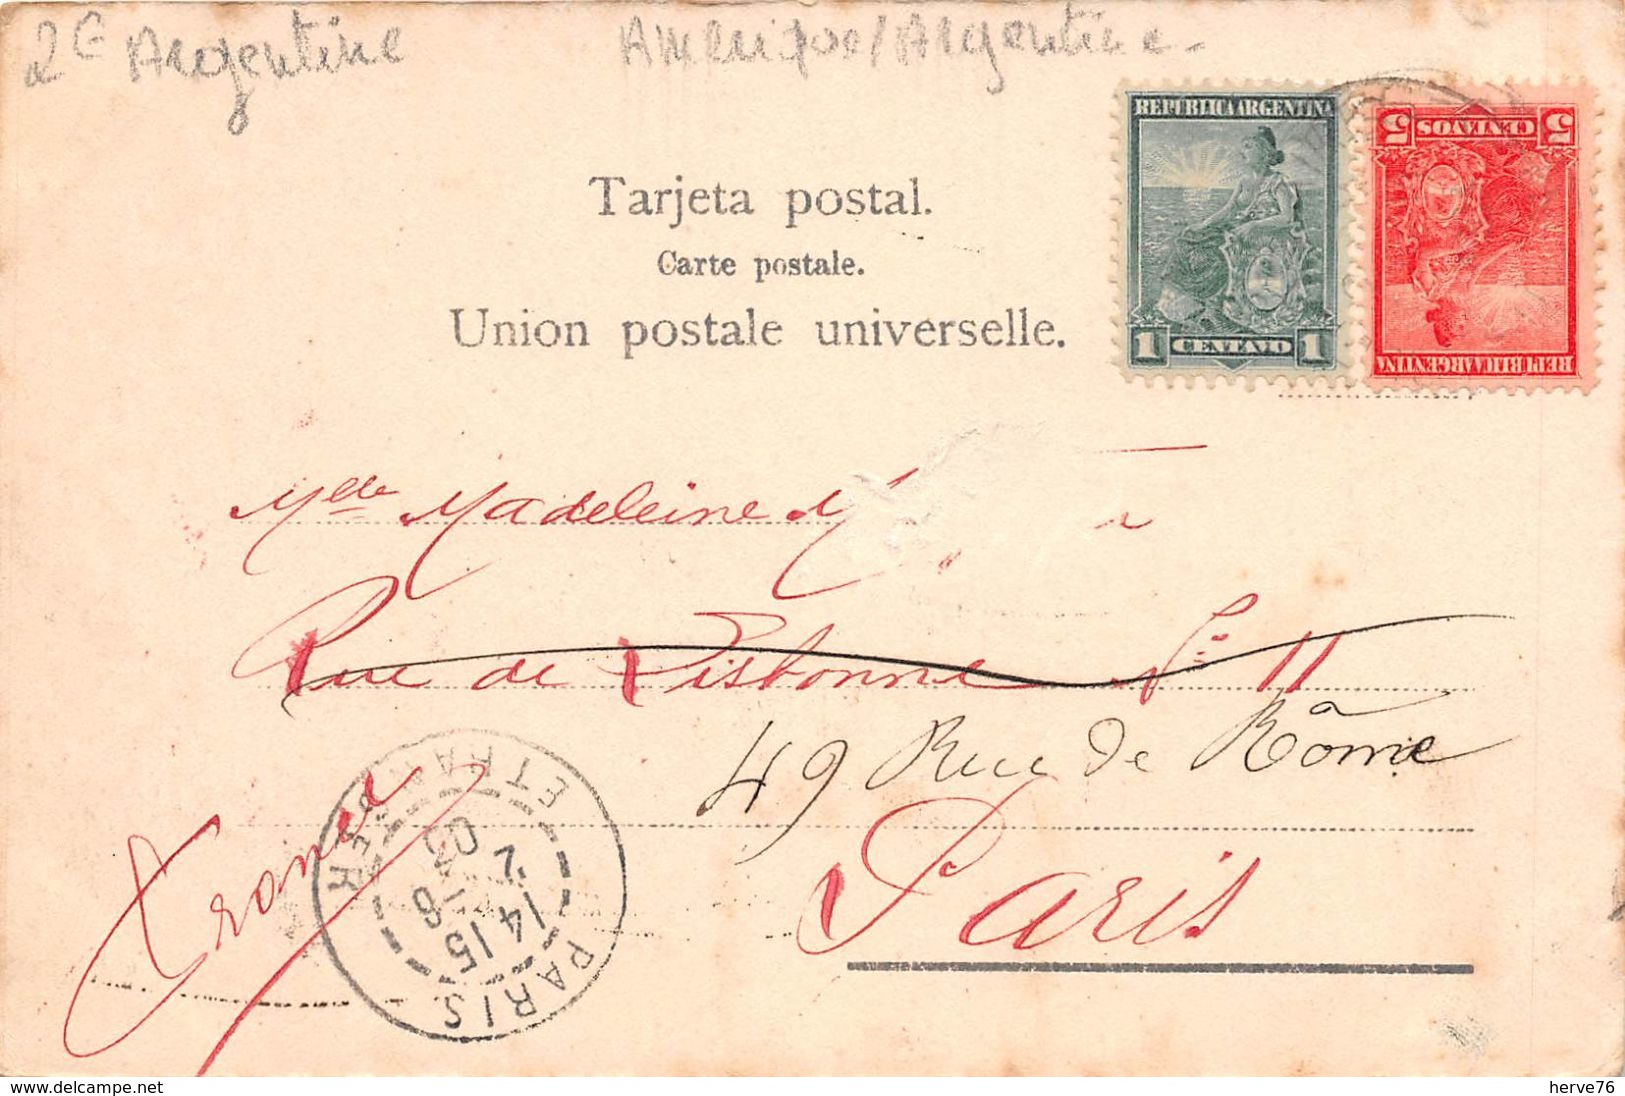 2€ Argentine Amérique/Argentine-
REPUBLICA ARGENTINA
1 CENTAVO 1
5 CENTAVOS 5
REPUBLICA ARGENTINA
Tarjeta postal.
Carte postale.
Union postale universelle.
Mlle Madeleine
Rue de Lisbonne No 11
49 Rue de Rome
Paris
France
PARIS ETRANGER
14 15
www.delcampe.net
herve76